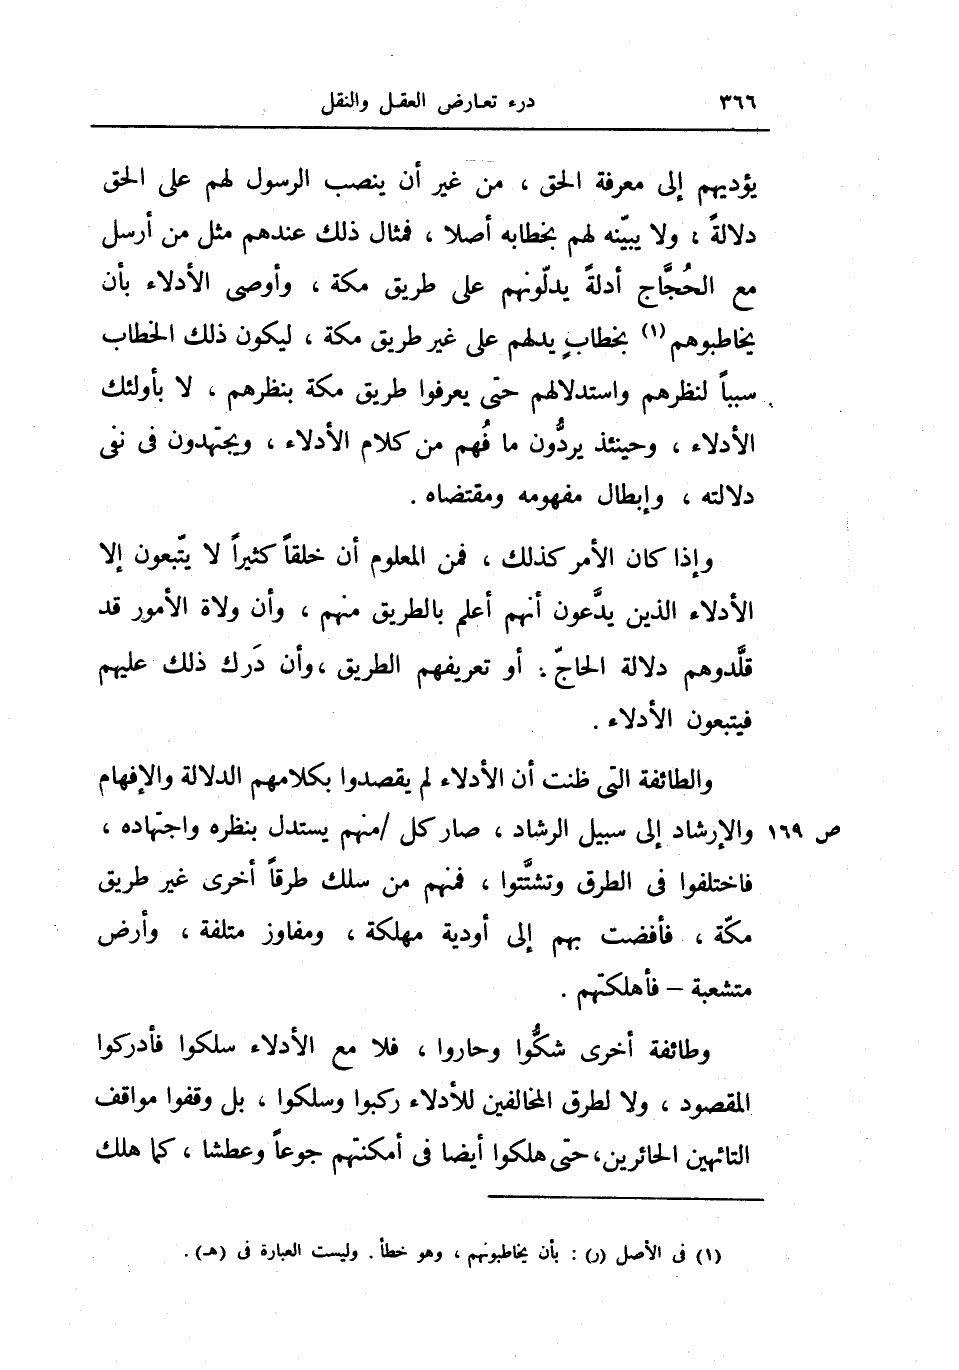 ٣٦٦ درء تعارض العقل والنقل
يؤديهم إلى معرفة الحق ، من غير أن ينصب الرسول لهم على الحق
دلالةً ، ولا يبيّنه لهم بخطابه أصلا ، فمثال ذلك عندهم مثل من أرسل
مع الحُجَّاج أدلةً يدلّونهم على طريق مكة ، وأوصى الأدلاء بأن
يخاطبوهم (١) بخطابٍ يدلهم على غير طريق مكة ، ليكون ذلك الخطاب
سبباً لنظرهم واستدلالهم حتّى يعرفوا طريق مكة بنظرهم ، لا بأولئك
الأدلاء ، وحينئذ يردُّون ما فُهم من كلام الأدلاء ، ويجتهدون فى نفى
دلالته ، وإبطال مفهومه ومقتضاه .
وإذا كان الأمر كذلك ، فمن المعلوم أن خلقاً كثيراً لا يتّبعون إلا
الأدلاء الذين يدَّعون أنهم أعلم بالطريق منهم ، وأن ولاة الأمور قد
قلَّدوهم دلالة الحاجّ . أو تعريفهم الطريق ، وأن دَرك ذلك عليهم
فيتبعون الأدلاء .
والطائفة التى ظنت أن الأدلاء لم يقصدوا بكلامهم الدلالة والإفهام
ص ١٦٩ والإرشاد إلى سبيل الرشاد ، صار كل /منهم يستدل بنظره واجتهاده ،
فاختلفوا فى الطرق وتشتَّتوا ، فمنهم من سلك طرقاً أخرى غير طريق
مكّة ، فأفضت بهم إلى أودية مهلكة ، ومفاوز متلفة ، وأرض
متشعبة – فأهلكتهم .
وطائفة أخرى شكُّوا وحاروا ، فلا مع الأدلاء سلكوا فأدركوا
المقصود ، ولا لطرق المخالفين للأدلاء ركبوا وسلكوا ، بل وقفوا مواقف
التائهين الحائرين، حتّى هلكوا أيضا فى أمكنتهم جوعاً وعطشا ، كما هلك
(١) فى الأصل (ر) : بأن يخاطبونهم ، وهو خطأ . وليست العبارة فى (هـ) .